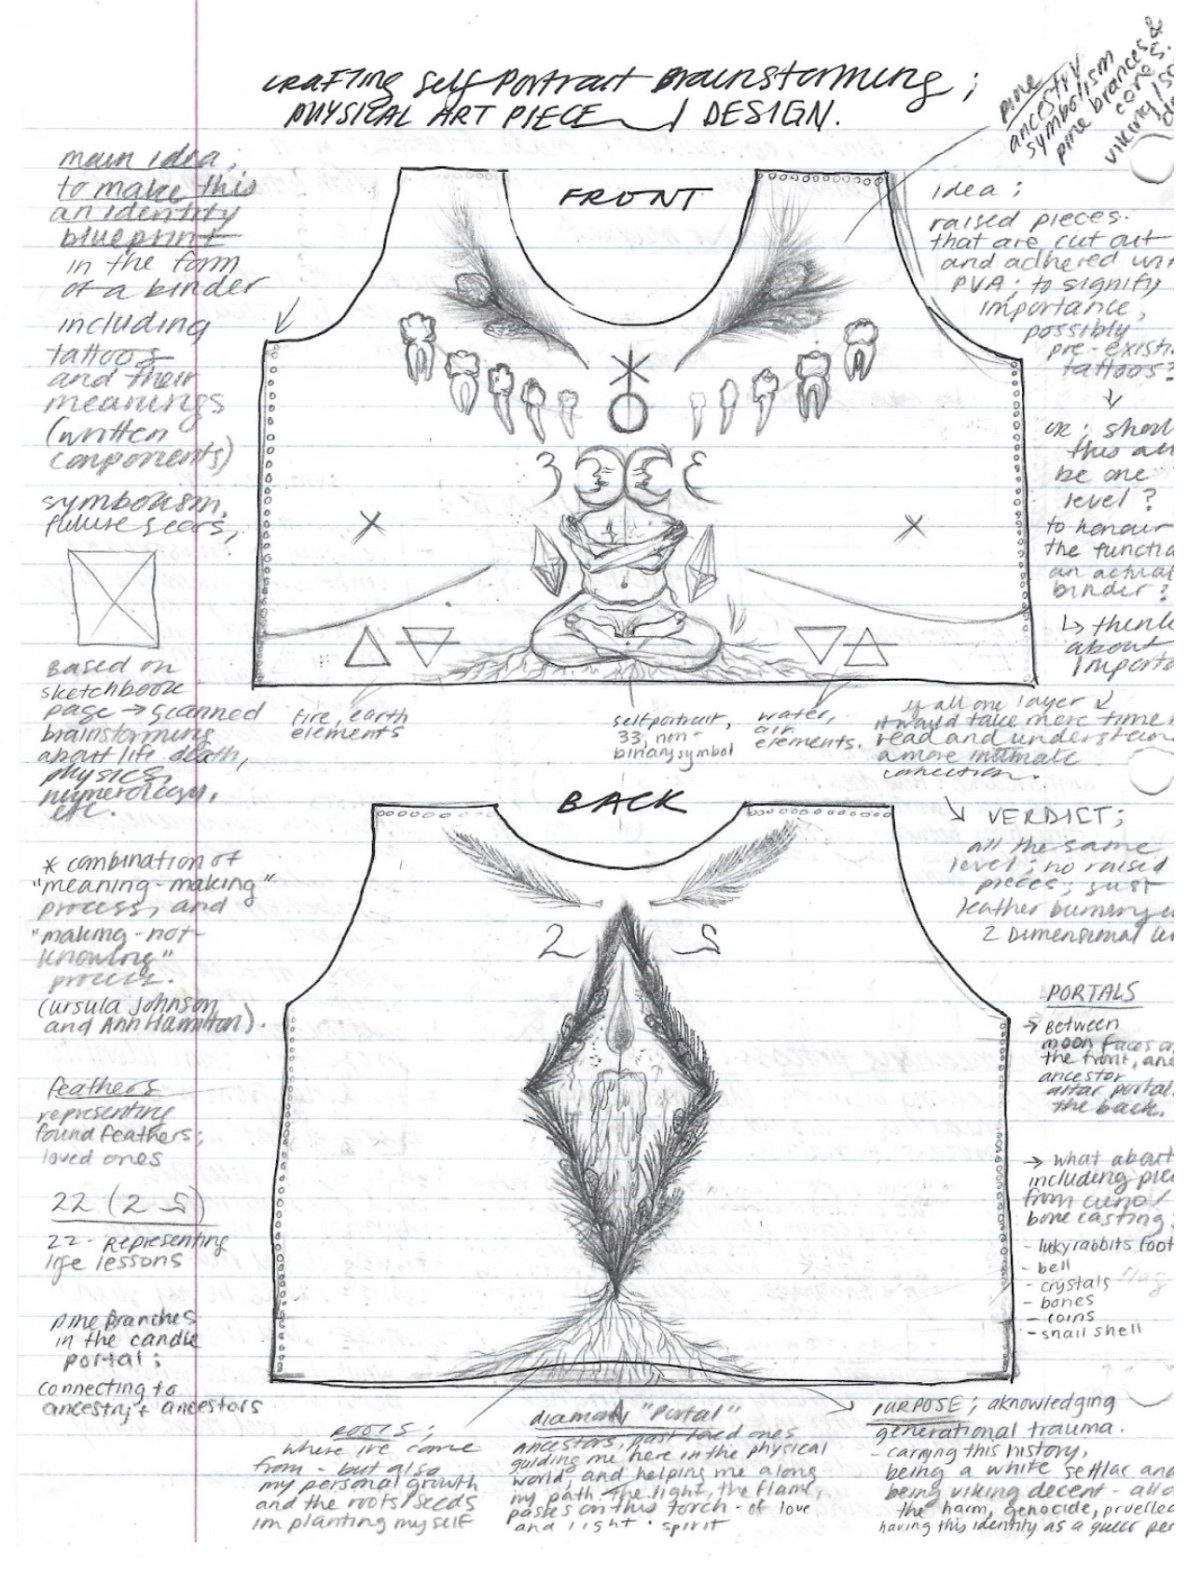 crafting self portrait Brainstorming ;
PHYSICAL ART PIECE / DESIGN.
pine
ancestry
symbolism
pine brances &
cones.
viking/
main idea,
to make this
an identity
blueprint
in the form
of a binder
including
tattoos
and their
meanings
(written
components)
symbolism,
future scars,
FRONT
idea ;
raised pieces
that are cut out
and adhered
PVA; to signify
importance,
possibly
pre-
tattoos?
or ;
this
be one
level ?
to honour
the
an actual
binder ?
↳ think
about
Based on
sketchbook
page → scanned
brainstorming
about life death,
physics,
numerology,
etc.
fire, earth
elements
self portrait,
33, non-
binary symbol
water,
air
elements.
if all one layer
it would take more time
read and
a more intimate
connection.
BACK
↘ VERDICT;
all the same
level; no raised
pieces, just
leather burning
2 Dimensional
* combination of
"meaning-making"
process, and
"making-not-
knowing"
process.
(ursula Johnson
and Ann Hamilton).
2 2
PORTALS
→ Between
moon faces
the front, and
ancestor
altar portal
the back.
feathers
representing
found feathers;
loved ones
22 (2 2)
22 - representing
life lessons
→ what about
including
from
bone casting
- lucky rabbits foot
- bell
- crystals
- bones
- coins
- snail shell
pine branches
in the candle
portal ;
connecting to
ancestry + ancestors
ROOTS ;
where ive come
from - but also
my personal growth
and the roots/seeds
im planting myself
diamond "Portal"
ancestors, past loved ones
guiding me here in the physical
world, and helping me along
my path. The light, the flame,
passes on this torch - of love
and light. spirit
PURPOSE ; aknowledging
generational trauma.
- carrying this history,
being a white settlar and
being viking decent -
the harm, genocide,
having this identity as a queer